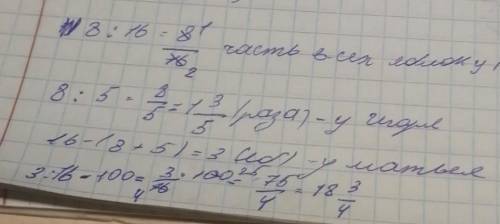 8 : 16 = 8/16 1/2 часть всех яблок у
8 : 5 = 8/5 = 1 3/5 (раза) - у Игоря
16 - (8 + 5) = 3 (яб) - у Матвея
3 : 16 · 100 = 3/16 4 · 100 25 = 75/4 = 18 3/4